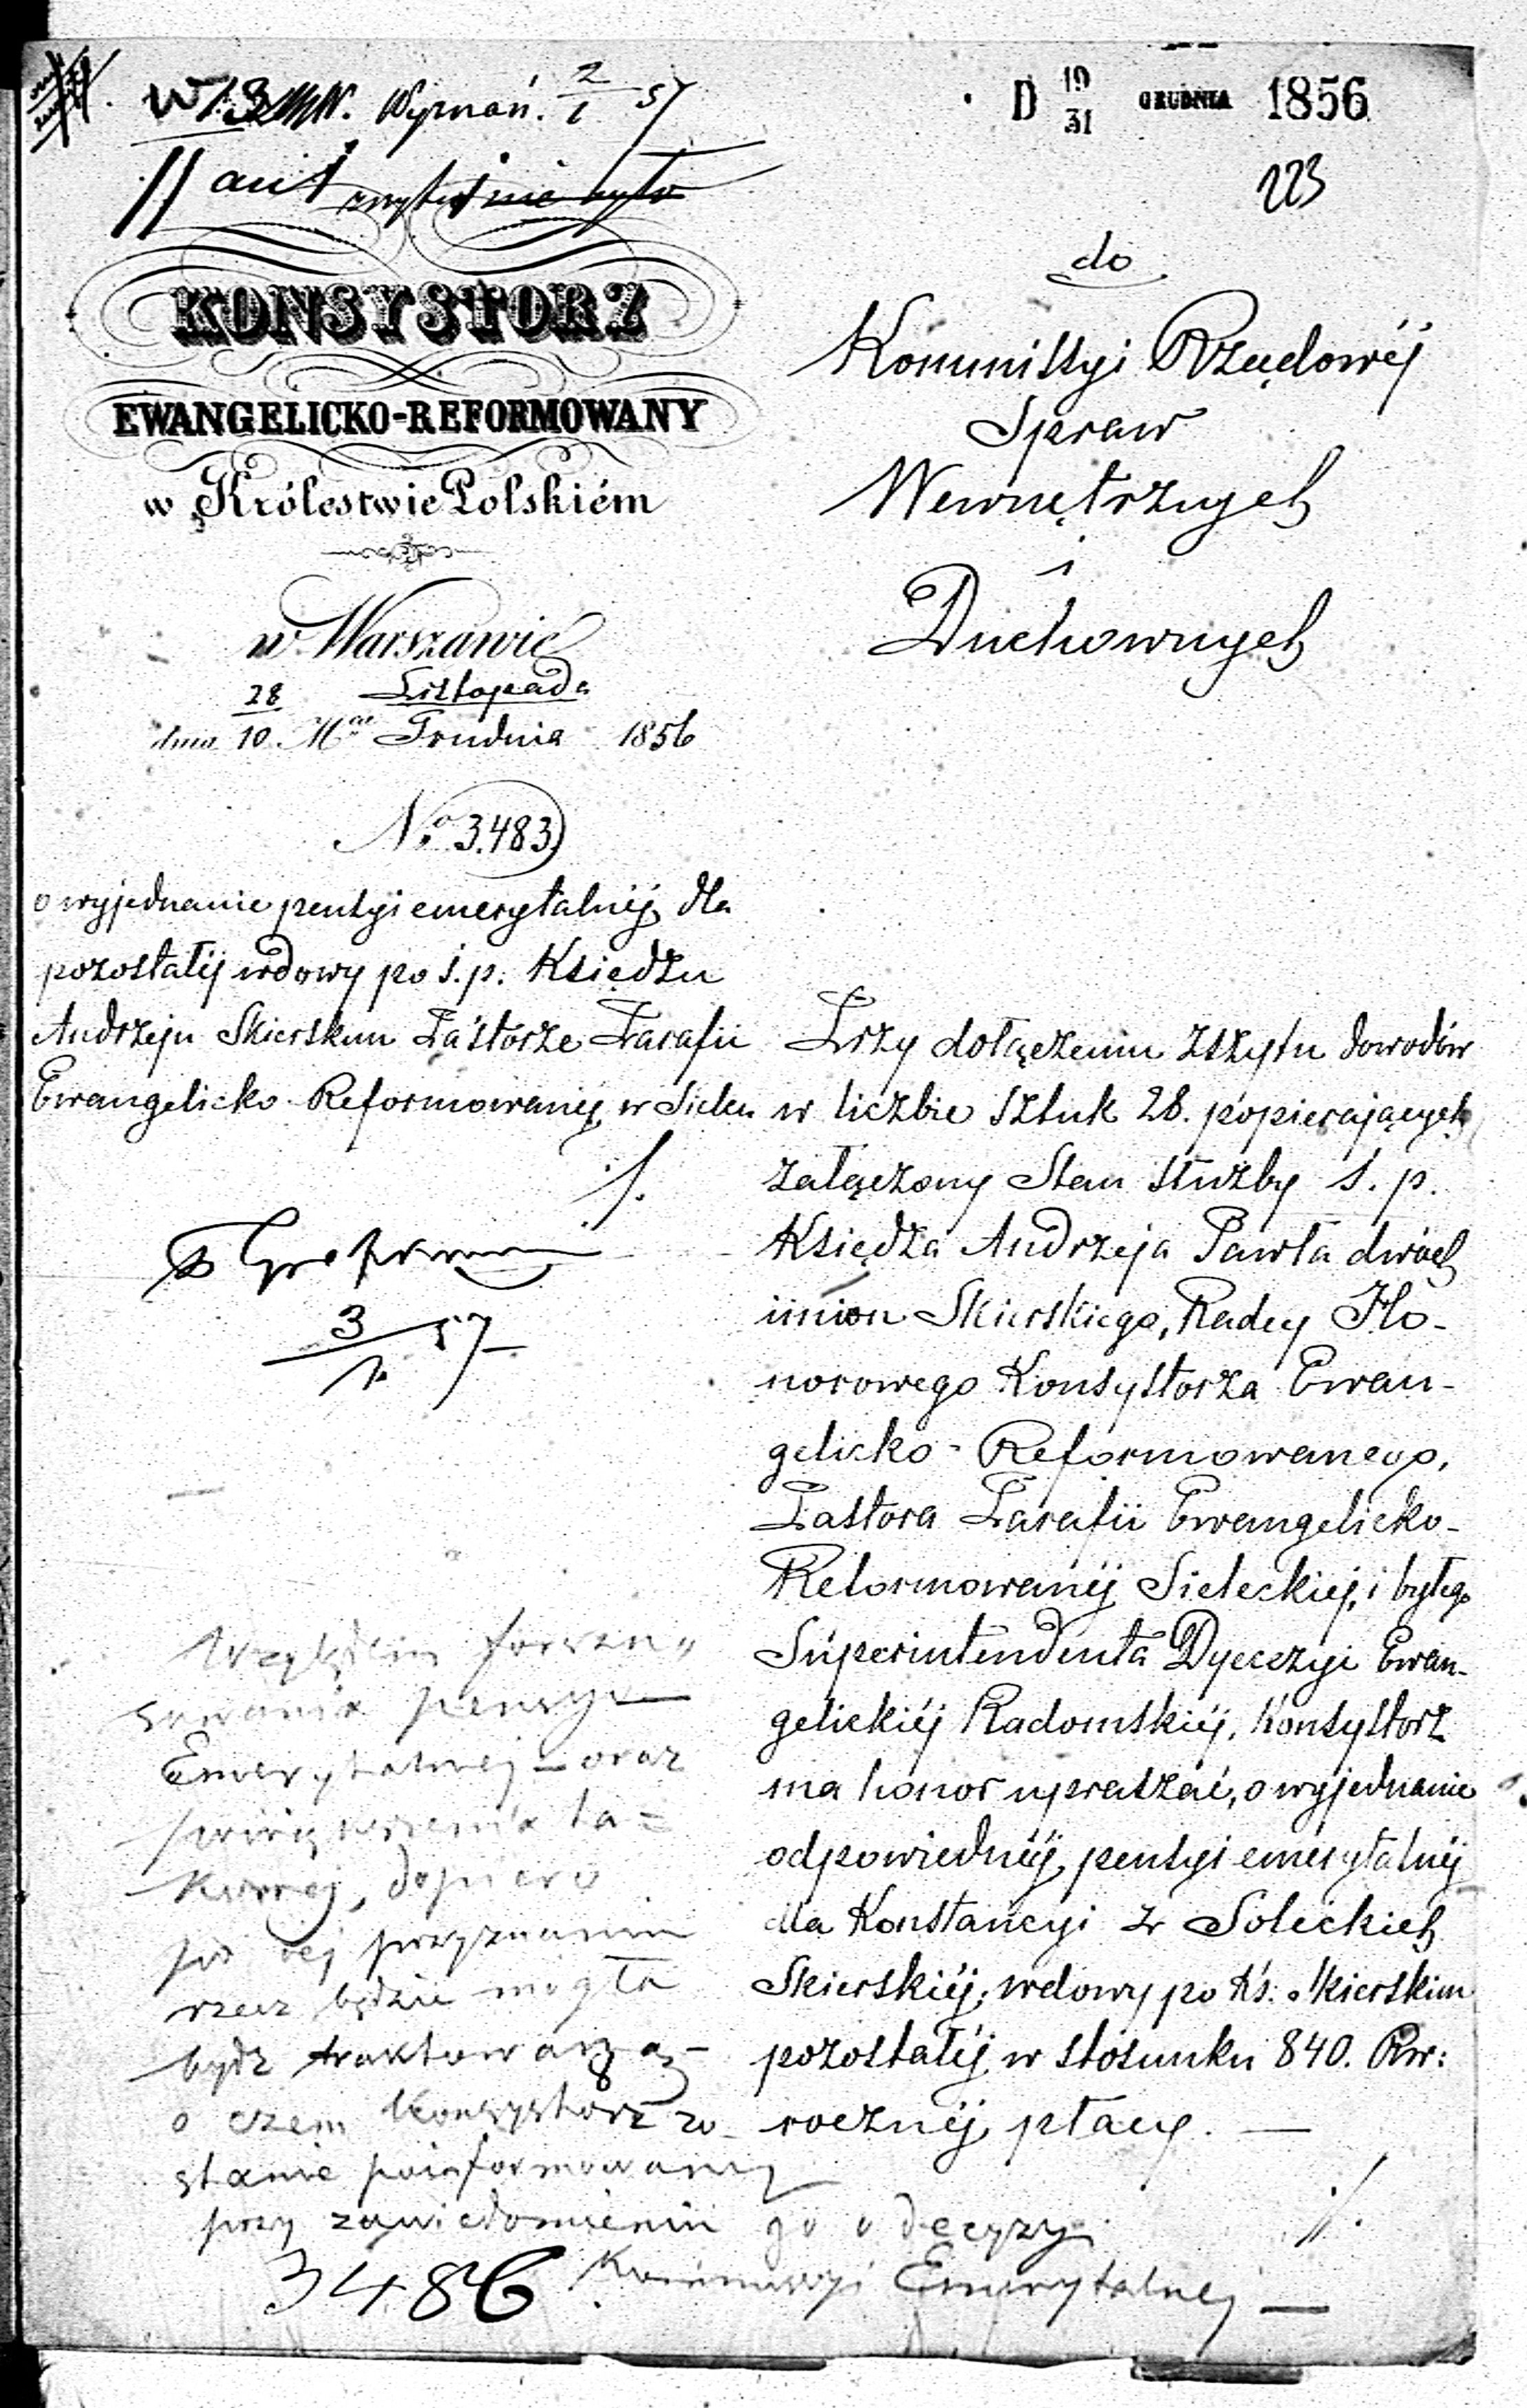 Wyznań. 2/1 57
D 19/31 GRUDNIA 1856
223
KONSYSTORZ
EWANGELICKO-REFORMOWANY
w Królestwie Polskiém
w Warszawie
28 Listopada
dnia 10 Mca Grudnia 1856
No 3.483
o wyjednanie pensyi emerytalnéj dla
pozostałéj wdowy po ś.p. Księdzu
Andrzeju Skierskim Pastorze Parafii
Ewangelicko-Reformowanéj w Sielcu
./.
3/1 57
do
Kommissyi Rządowéj
Spraw
Wewnętrznych
i
Duchownych
Przy dołączeniu zszytu dowodów
w liczbie sztuk 28. popierających
załączony Stan służby ś. p.
Księdza Andrzeja Pawła dwóch
imion Skierskiego, Radcy Ho-
norowego Konsystorza Ewan-
gelicko-Reformowanego,
Pastora Parafii Ewangelicko-
Reformowanéj Sieleckiéj, i byłego
Superintendenta Dyecezyi Ewan-
gelickiéj Radomskiéj, Konsystorz
ma honor upraszać, o wyjednanie
odpowiednéj pensyi emerytalnéj
dla Konstancyi z Soleckich
Skierskiéj, wdowy po Ks. Skierskim
pozostałéj w stosunku 840. Rs:
rocznéj płacy. —
./.
Względem
pensyi
Emerytalnej – oraz
ta=
kowej, dopiero
po jej przyznaniu
rzecz będzie mogła
bydz traktowaną –
o czem Konsystorz zo-
stanie poinformowany
przy zawiadomieniu go o decyzyi
Kommissyi Emerytalnej —
3486